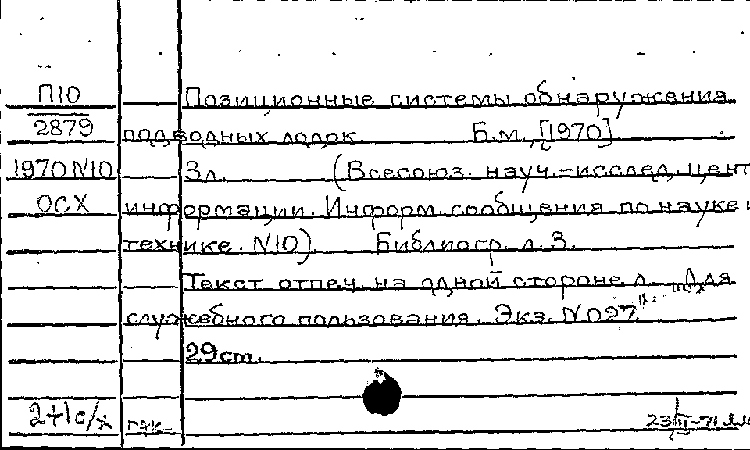 П10 Позиционные системы обнаружения
2879 подводных лодок Б.м., [1970]
1970 N10 3л. (Всесоюз. науч.-исслед. цент
ОСХ информации. Информ. сообщения по науке и
технике. N10). Библиогр. л. 3.
Текст отпеч. на одной стороне л. Для
служебного пользования. Экз. N027
29cm.
2+1с/х 23/III-71